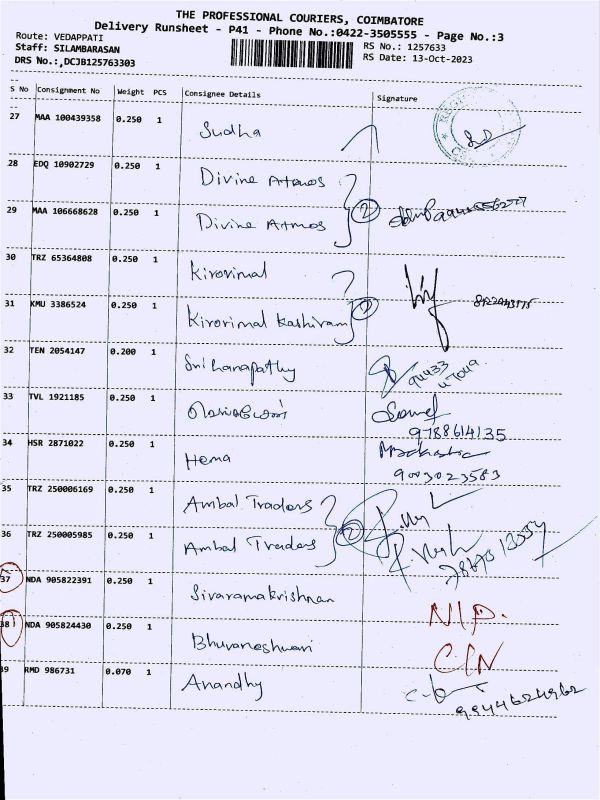 THE PROFESSIONAL COURIERS, COIMBATORE
Delivery Runsheet - P41 - Phone No.:0422-3505555 - Page No.:3
Route: VEDAPPATI
RS No.: 1257633
Staff: SILAMBARASAN
RS Date: 13-Oct-2023
DRS No.:,DCJB125763303
S No Consignment No Weight PCS Consignee Details Signature
27 MAA 100439358 0.250 1 Sudha
28 EDQ 10902729 0.250 1 Divine Atmos
29 MAA 106668628 0.250 1 Divine Atmos 2
30 TRZ 65364808 0.250 1 Kirorimal
31 KMU 3386524 0.250 1 Kirorimal Kashiram 2
32 TEN 2054147 0.200 1 Sri Ganapathy 94433 47049
33 TVL 1921185 0.250 1
9788614135
34 HSR 2871022 0.250 1 Hema
9003023583
35 TRZ 250006169 0.250 1 Ambal Traders
36 TRZ 250005985 0.250 1 Ambal Traders 2
37 NDA 905822391 0.250 1 Sivaramakrishnan N.P.
38 NDA 905824430 0.250 1 Bhuvaneshwari C/N
39 RMD 986731 0.070 1 Anandhy
9944624962